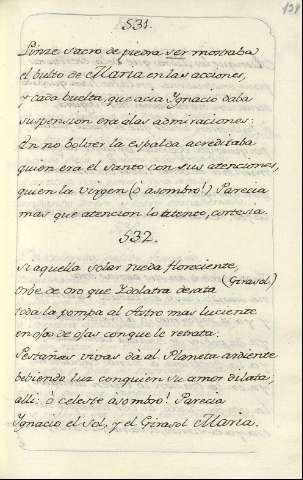 139
531.
Linze sacro de piedra ser mostraba
el bulto de Maria en las acciones,
y cada buelta, que acia Ygnacio daba
suspension era âlas admiraciones:
En no bolver la espalda acreditaba
quien era el santo con sus atenciones,
quien la virgen (ô asombro!) Parecia
mas que atencion lo atento, cortesia.
532.
Si aquella solar rueda floreciente,
(Girasol)
Orbe de Oro que Ydolatra desata
toda la pompa al Astro mas luciente
en ojos de ojas con que le retrata:
Pestañas vivas dà al Planeta ardiente
bebiendo luz con quien su amor dilata;
alli: ò celeste âsombro! Parecia
Ygnacio el Sol, y el Girasol Maria.